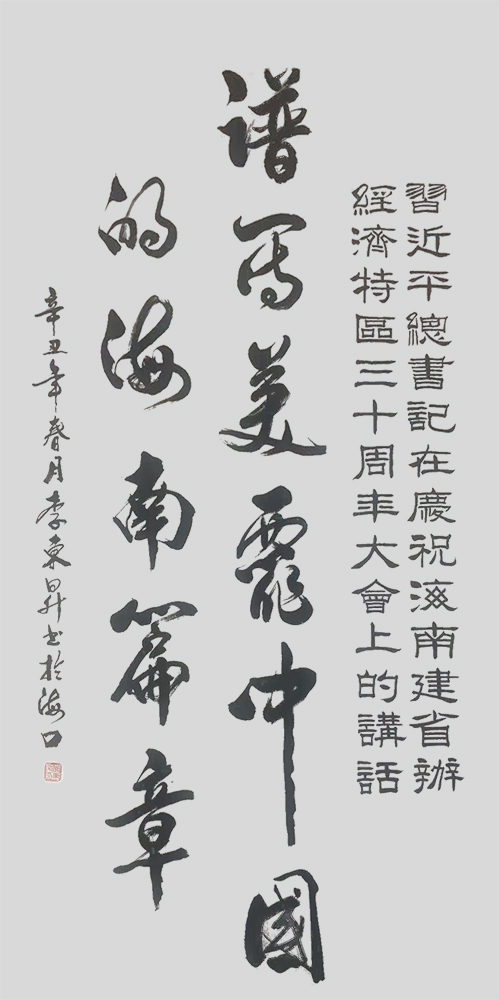 習近平總書記在慶祝海南建省辦
經濟特區三十周年大會上的講話
譜写美麗中國
的海南篇章
辛丑年春月李東昇书於海口